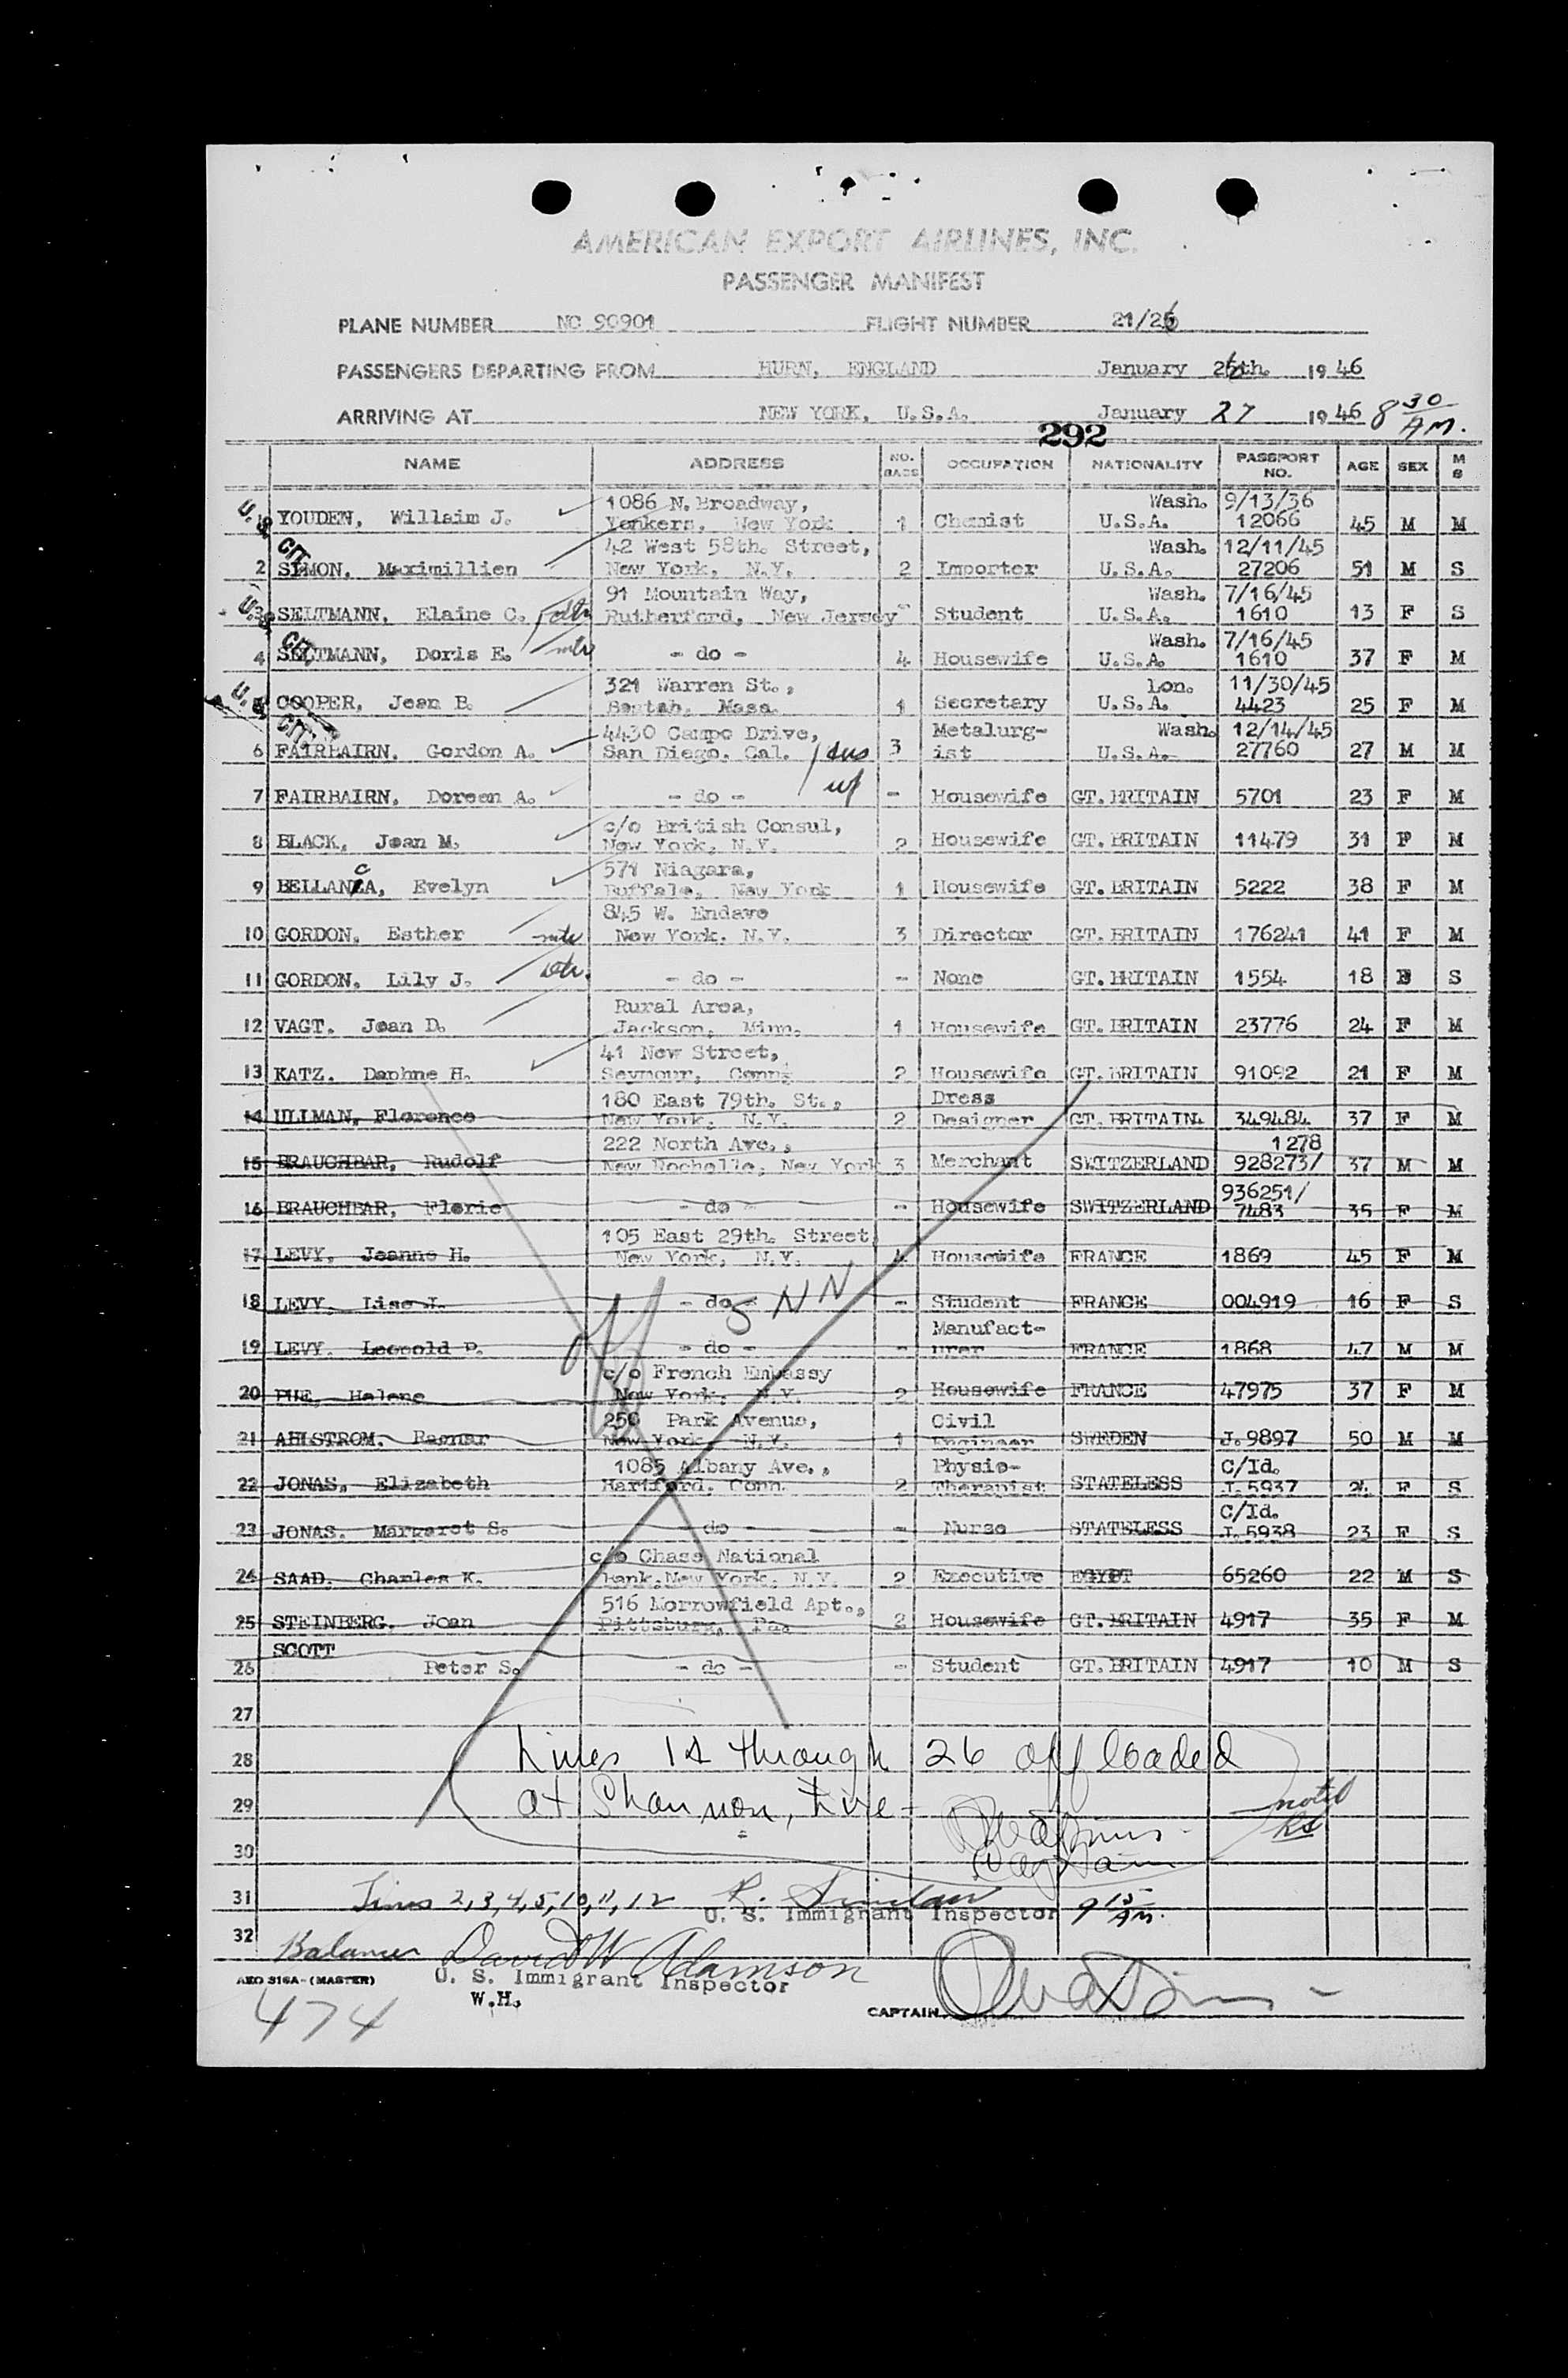 AMERICAN EXPORT AIRLINES, INC.
PASSENGER MANIFEST
PLANE NUMBER NC 90901 FLIGHT NUMBER 21/26
PASSENGERS DEPARTING FROM HURN, ENGLAND January 26th. 1946
ARRIVING AT NEW YORK, U.S.A. January 27 1946 8 30 AM.
292
NAME ADDRESS NO. BAGS OCCUPATION NATIONALITY PASSPORT NO. AGE SEX M S
U.S. CIT.
1086 N. Broadway, Wash. 9/13/36
1 YOUDEN, Willaim J. Yonkers, New York 1 Chemist U.S.A. 12066 45 M M
42 West 58th. Street, Wash. 12/11/45
2 SIMON, Maximillien New York, N.Y. 2 Importer U.S.A. 27206 51 M S
U.S. CIT.
91 Mountain Way, Wash. 7/16/45
3 SELTMANN, Elaine C. Rutherford, New Jersey - Student U.S.A. 1610 13 F S
Wash. 7/16/45
4 SELTMANN, Doris E. - do - 4 Housewife U.S.A. 1610 37 F M
U.S. CIT.
321 Warren St., Lon. 11/30/45
5 COOPER, Jean B. Mass. 1 Secretary U.S.A. 4423 25 F M
4430 Campo Drive, Metalurg- Wash. 12/14/45
6 FAIRBAIRN, Gordon A. San Diego. Cal. 3 ist U.S.A. 27760 27 M M
7 FAIRBAIRN, Doreen A. - do - wf - Housewife GT.BRITAIN 5701 23 F M
c/o British Consul,
8 BLACK, Jean M. New York, N.Y. 2 Housewife GT.BRITAIN 11479 31 F M
c 571 Niagara,
9 BELLANCA, Evelyn Buffalo, New York 1 Housewife GT.BRITAIN 5222 38 F M
845 W. Endave
10 GORDON, Esther New York. N.Y. 3 Director GT.BRITAIN 176241 41 F M
11 GORDON, Lily J. - do - - None GT.BRITAIN 1554 18 F S
Rural Area,
12 VAGT. Jean D. Jackson, Minn. 1 Housewife GT.BRITAIN 23776 24 F M
41 New Street,
13 KATZ. Daphne H. Seymour, Conn. 2 Housewife GT.BRITAIN 91092 21 F M
180 East 79th. St., Dress
14 ULLMAN, Florence New York, N.Y. 2 Designer GT.BRITAIN. 349484 37 F M
222 North Ave., 1278
15 BRAUCHBAR, Rudolf New Rochelle, New York 3 Merchant SWITZERLAND 928273/ 37 M M
936251/
16 BRAUCHBAR, Florie - do - - Housewife SWITZERLAND 7483 35 F M
105 East 29th. Street,
17 LEVY, Jeanne H. New York, N.Y. 4 Housewife FRANCE 1869 45 F M
18 LEVY, Lise J. - do - - Student FRANCE 004919 16 F S
Manufact-
19 LEVY. Leopold P. - do - - urer FRANCE 1868 47 M M
c/o French Embassy
20 PUE, Helene New York. N.Y. 2 Housewife FRANCE 47975 37 F M
250 Park Avenue, Civil
21 AHLSTROM. Ragnar New York, N.Y. 1 Engineer SWEDEN J.9897 50 M M
1085 Albany Ave., Physio- C/Id.
22 JONAS, Elizabeth Hartford. Conn. 2 Therapist STATELESS J.5937 24 F S
C/Id.
23 JONAS. Margaret S. - do - - Nurse STATELESS J.5938 23 F S
c/o Chase National
24 SAAD. Charles K. Bank,New York, N.Y. 2 Executive EGYPT 65260 22 M S
516 Morrowfield Apt.,
25 STEINBERG. Joan Pittsburg, Pa. 2 Housewife GT.BRITAIN 4917 35 F M
SCOTT
26 Peter S. - do - - Student GT.BRITAIN 4917 10 M S
27
28 Lines 14 through 26 off loaded
29 at Shannon, Eire - noted
30 Captain
31 Lines 2,3,4,5,10,11,12 R. Sinclair 9 15 AM.
U. S. Immigrant Inspector
32 Balance David W Adamson
AEO 316A-(MASTER) U. S. Immigrant Inspector
W.H.
474
CAPTAIN